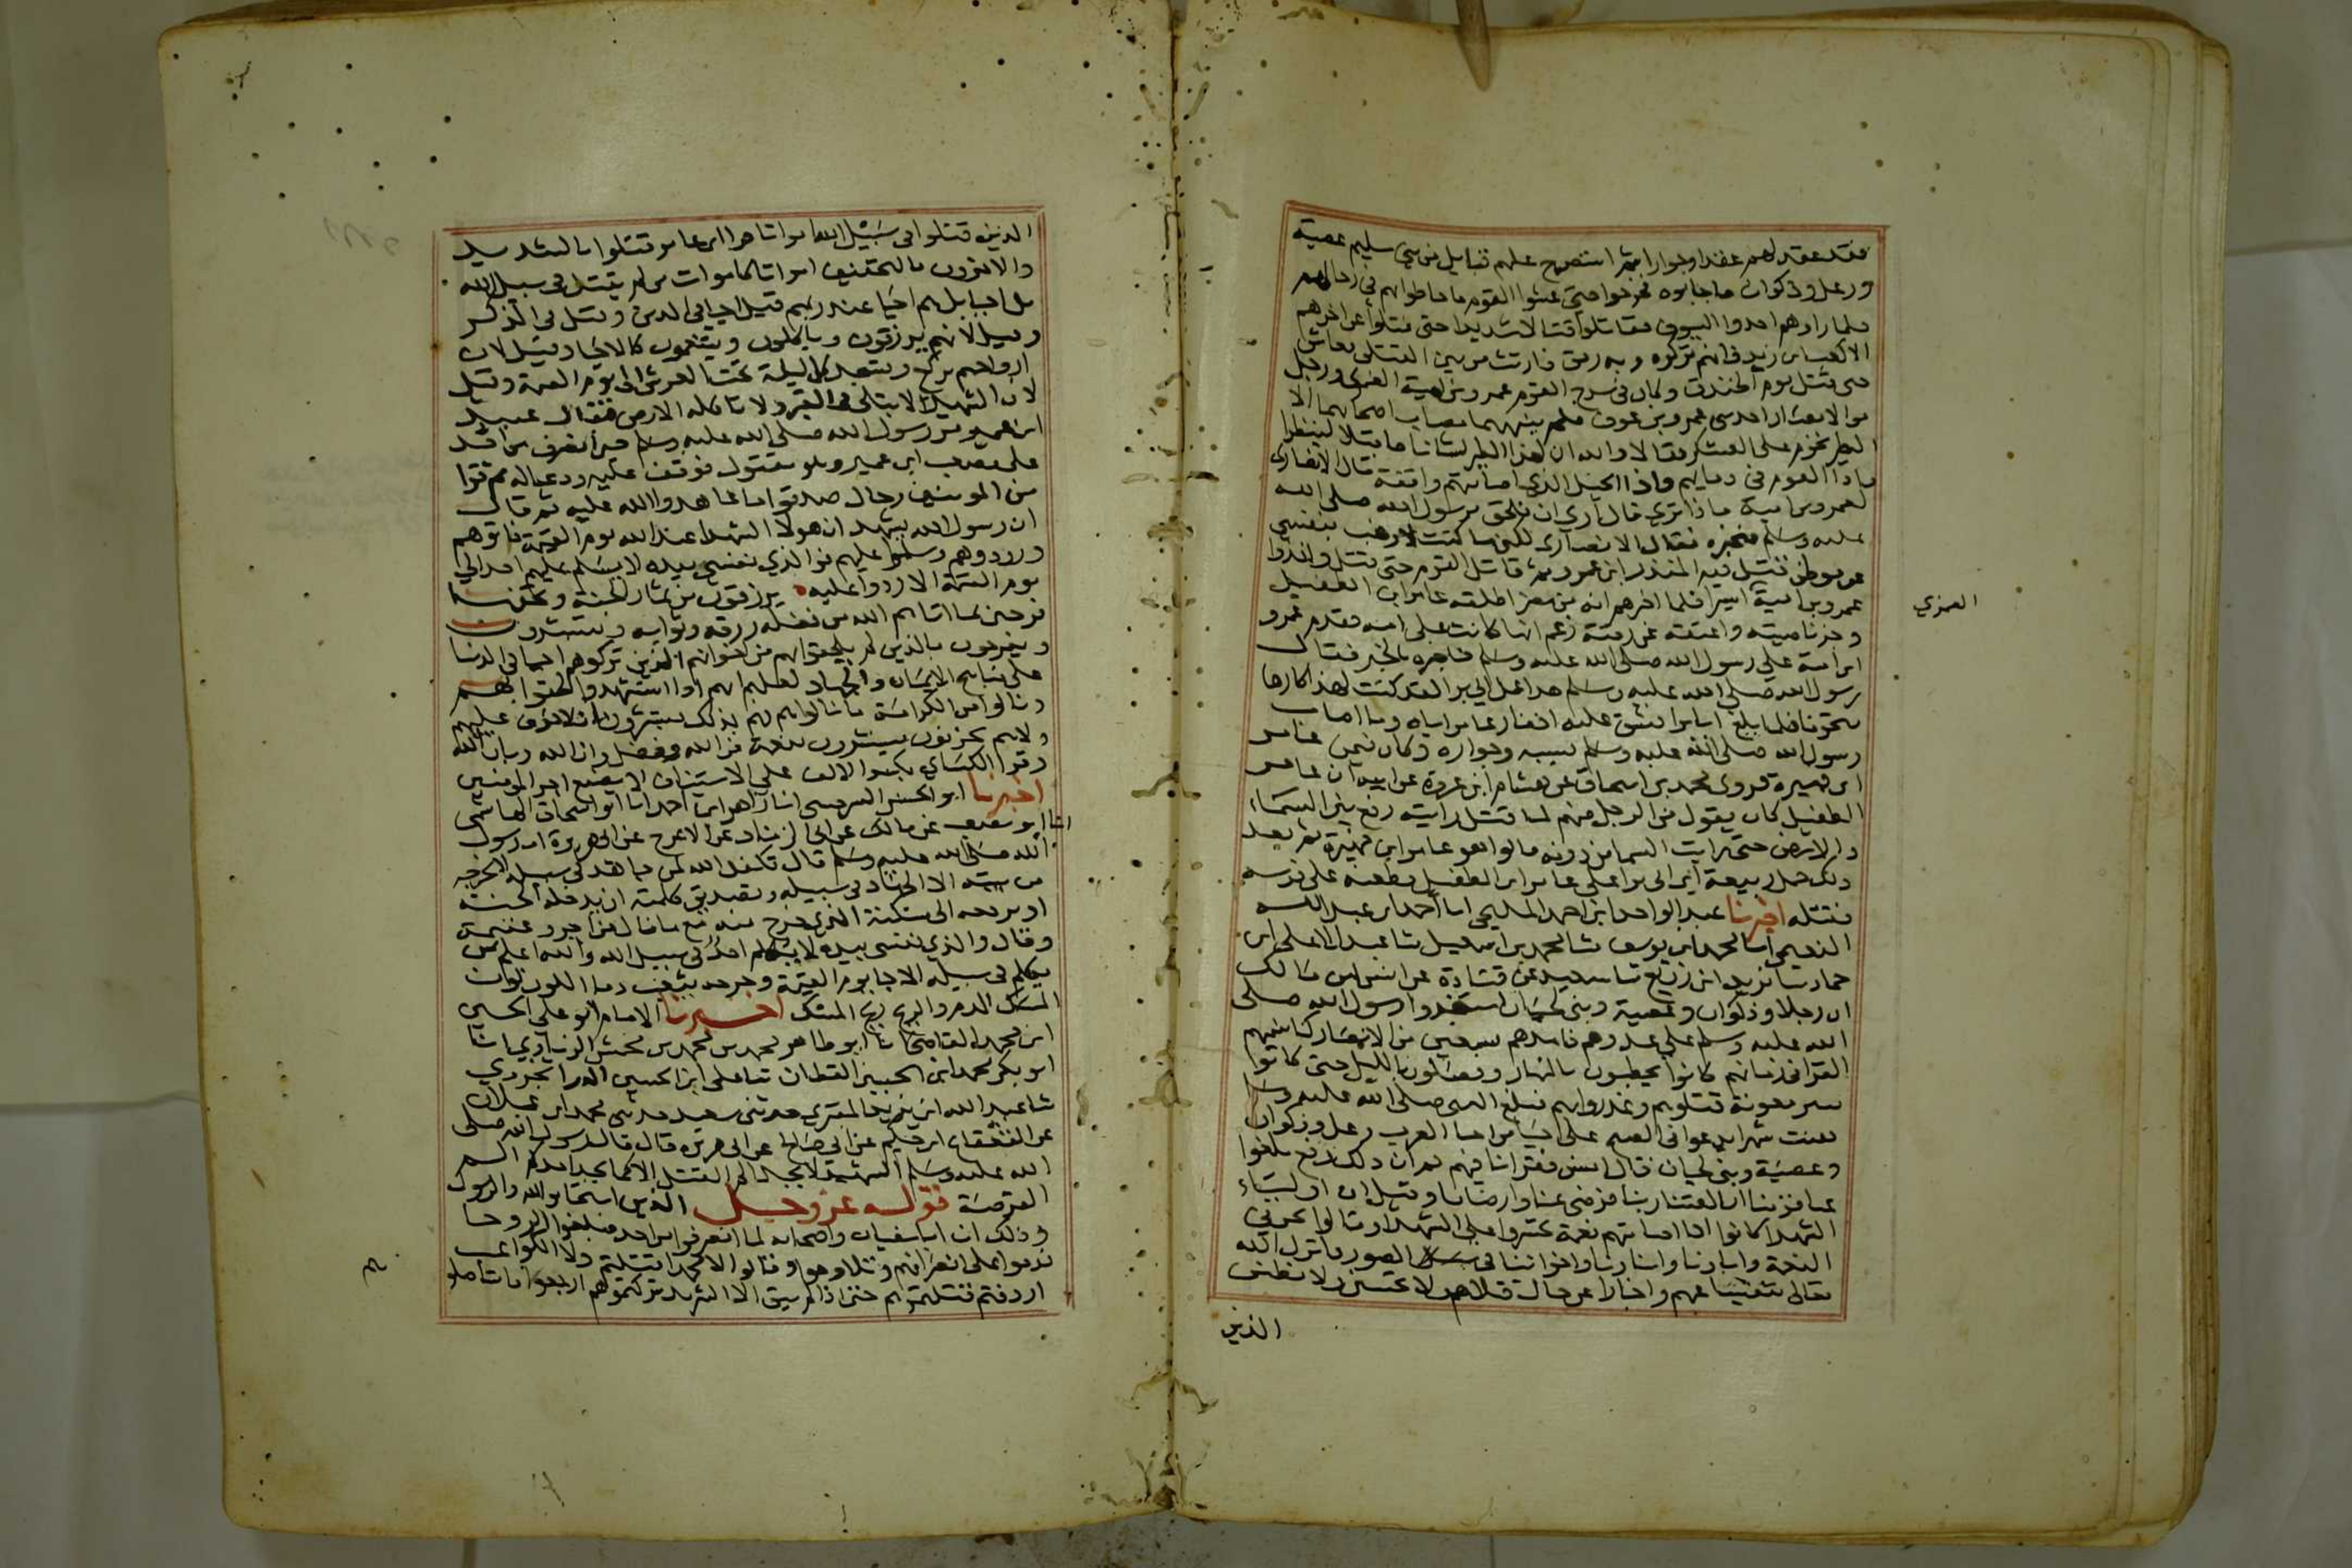 فقد عقد لهم عقدا وجوارا ثم استصرخ عليهم قبايل من بني سليم عصية
ورعل وذكوان فاجابوه فخرجوا حتى غشوا القوم فاحاطوا بهم في رحالهم
فلما راوهم اخذوا السيوف فقاتلوا قتالا شديدا حتى قتلوا عن اخرهم
الا كعب بن زيد فانهم تركوه وبه رمق فارتث من بين القتلى فعاش
حتى قتل يوم الخندق وكان في سرح القوم عمرو بن امية الضمري ورجل
من الانصار احد بني عمرو بن عوف فلم ينبههما بمصاب اصحابهما الا
الطير تحوم على العسكر فقالا والله ان لهذا الطير لشانا فاقبلا لينظرا
فاذا القوم في دمايهم واذا الخيل الذي اصابتهم واقفة فقال الانصاري
لعمرو بن امية ماذا ترى قال ارى ان نلحق برسول الله صلى الله
عليه وسلم فنخبره فقال الانصاري لكني ما كنت لارغب بنفسي
عن موطن قتل فيه المنذر ابن عمرو ثم قاتل القوم حتى قتل واخذوا
عمرو بن امية اسيرا فلما اخبرهم انه من مضر اطلقه عامر ابن الطفيل
وجز ناصيته واعتقه عن رقبة زعم انها كانت على امه فقدم عمرو
ابن امية على رسول الله صلى الله عليه وسلم فاخبره الخبر فقال
رسول الله صلى الله عليه وسلم هذا عمل ابي برا لقد كنت لهذا كارها
متخوفا فبلغ ابا برا فشق عليه اخفار عامر اياه وما اصاب
رسول الله صلى الله عليه وسلم بسببه وجواره وكان فيمن
ابن فهيرة فروى محمد بن اسحاق عن هشام ابن عروة عن ابيه ان عامر
الطفيل كان يقول من الرجل منهم لما قتل رايته رفع بين السماء
والارض حتى رايت السما من دونه قالوا هو عامر ابن فهيرة ثم بعد
ذلك حمل ربيعة ابن ابي برا على عامر ابن الطفيل فطعنه على فرسه
فقتله اخبرنا عبد الواحد ابن احمد المليحي انا احمد ابن عبد الله
النعيمي انا محمد ابن يوسف ثنا محمد بن اسمعيل ثنا عبد الاعلى ابن
حماد ثنا يزيد ابن زريع ثنا سعيد عن قتادة عن انس ابن مالك
ان رعلا وذكوان وعصية وبني لحيان استمدوا رسول الله صلى
الله عليه وسلم على عدوهم فامدهم بسبعين من الانصار كنا نسميهم
القرا في زمانهم كانوا يحتطبون بالنهار ويصلون بالليل حتى كانوا
ببير معونة قتلوهم وغدروا بهم فبلغ النبي صلى الله عليه وسلم
فقنت شهرا يدعوا في الصبح على احيا من احيا العرب رعل وذكوان
وعصية وبني لحيان قال انس فقرانا فيهم ثم ان ذلك رفع بلغوا
عنا قومنا انا لقينا ربنا فرضي عنا وارضانا وقيل ان اوليتاء
الشهدا كانوا اذا اصابتهم نعمة تحسروا على الشهدا وقالوا نحن في
النعمة وابآونا وابنآونا واخواننا في القبور فانزل الله
تعالى تنفيسا عنهم واخبارا عن حال قتلاهم ولا تحسبن ولا تظنن
الذين
الضمري
الذين قتلوا في سبيل الله امواتا قرا ابن عامر قتلوا بالتشديد
والاخرون بالتخفيف امواتا كاموات من لم يقتل في سبيل الله
بل احيا بل هم احيا عند ربهم قيل احيا في الدين وقيل في الذكر
وقيل لانهم يرزقون وياكلون ويتنعمون كالاحيا وقيل لان
ارواحهم تركع وتسجد كل ليلة تحت العرش الى يوم القيمة وقيل
لان الشهيد لا يبلى في القبر ولا تاكله الارض فقال عبيد
ابن عمير مر رسول الله صلى الله عليه وسلم حين انصرف من احد
على مصعب ابن عمير وهو مقتول فوقف عليه ودعا له ثم قرا
من المومنين رجال صدقوا ما عاهدوا الله عليه ثم قال
ان رسول الله يشهد ان هولا الشهدا عند الله يوم القيمة فاتوهم
وزوروهم وسلموا عليهم فوالذي نفسي بيده لا يسلم عليهم احد الى
يوم القيمة الا ردوا عليه يرزقون من ثمار الجنة وتحفها
فرحين بما اتاهم الله من فضله رزقه وثوابه ويستبشرون
ويفرحون بالذين لم يلحقوا بهم من اخوانهم الذين تركوهم احيا في الدنيا
على مناهج الايمان والجهاد لعلمهم انهم اذا استشهدوا لحقوا بهم
ونالوا من الكرامة ما نالوا هم فهم بذلك مستبشرون ان لا خوف عليهم
ولا هم يحزنون يستبشرون بنعمة من الله وفضل وان الله وبان الله
وقرا الكساي بكسر الالف على الاستيناف لا يضيع اجر المومنين
اخبرنا ابو الحسن السرخسي انا زاهر ابن احمد انا ابو اسحاق الهاشمي
انا ابو مصعب عن مالك عن ابي الزناد عن الاعرج عن ابي هريرة ان رسول
الله صلى الله عليه وسلم قال تكفل الله لمن جاهد في سبيله لا يخرجه
من بيته الا الجهاد في سبيله وتصديق كلمته ان يدخله الجنة
او يرجعه الى مسكنه الذي خرج منه مع ما نال من اجر وغنيمة
وقال والذي نفسي بيده لا يكلم احد في سبيل الله والله اعلم بمن
يكلم في سبيله الا جا يوم القيمة وجرحه يثعب دما اللون لون
المسك الدم والريح ريح المسك اخبرنا الامام ابو علي الحسين
ابن محمد القاضي انا ابو طاهر محمد بن محمد بن محمش الزيادي انا
ابو بكر محمد ابن الحسين القطان ثنا علي ابن الحسين الدرابجردي
ثنا عبد الله ابن يزيد المقري حدثني سعيد حدثني محمد ابن عجلان
عن القعقاع ابن حكيم عن ابي صالح عن ابي هريرة قال قال رسول الله صلى
الله عليه وسلم الشهيد لا يجد الم القتل الا كما يجد احدكم الم
القرصة قوله عز وجل الذين استجابوا لله والرسول
وذلك ان ابا سفيان واصحابه لما انصرفوا من احد فبلغوا الروحا
ندموا على انصرافهم وتلاوموا وقالوا لا محمدا قتلتم ولا الكواعب
اردفتم قتلتموهم حتى اذا لم يبق الا الشريد تركتموهم ارجعوا فاستاصلو